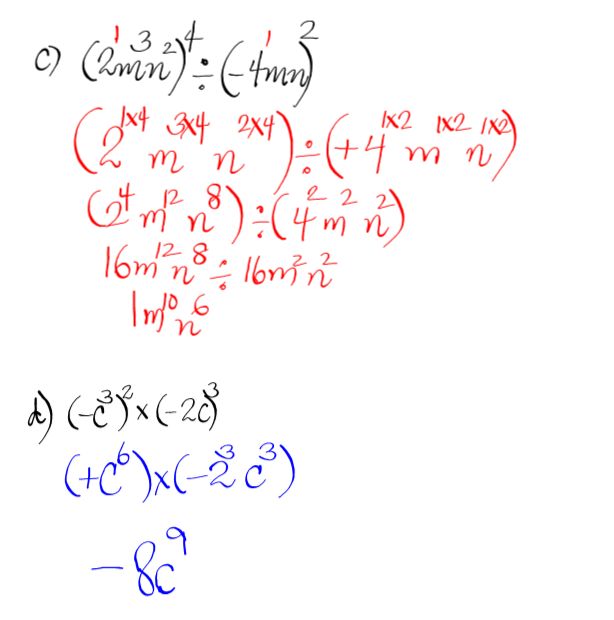 c) (2¹m³n²)⁴ ÷ (-4¹mn)²
(2¹ˣ⁴ m³ˣ⁴ n²ˣ⁴) ÷ (+4¹ˣ² m¹ˣ² n¹ˣ²)
(2⁴ m¹² n⁸) ÷ (4² m² n²)
16m¹²n⁸ ÷ 16m²n²
1m¹⁰n⁶
d) (-c³)² × (-2c)³
(+c⁶) × (-2³ c³)
-8c⁹